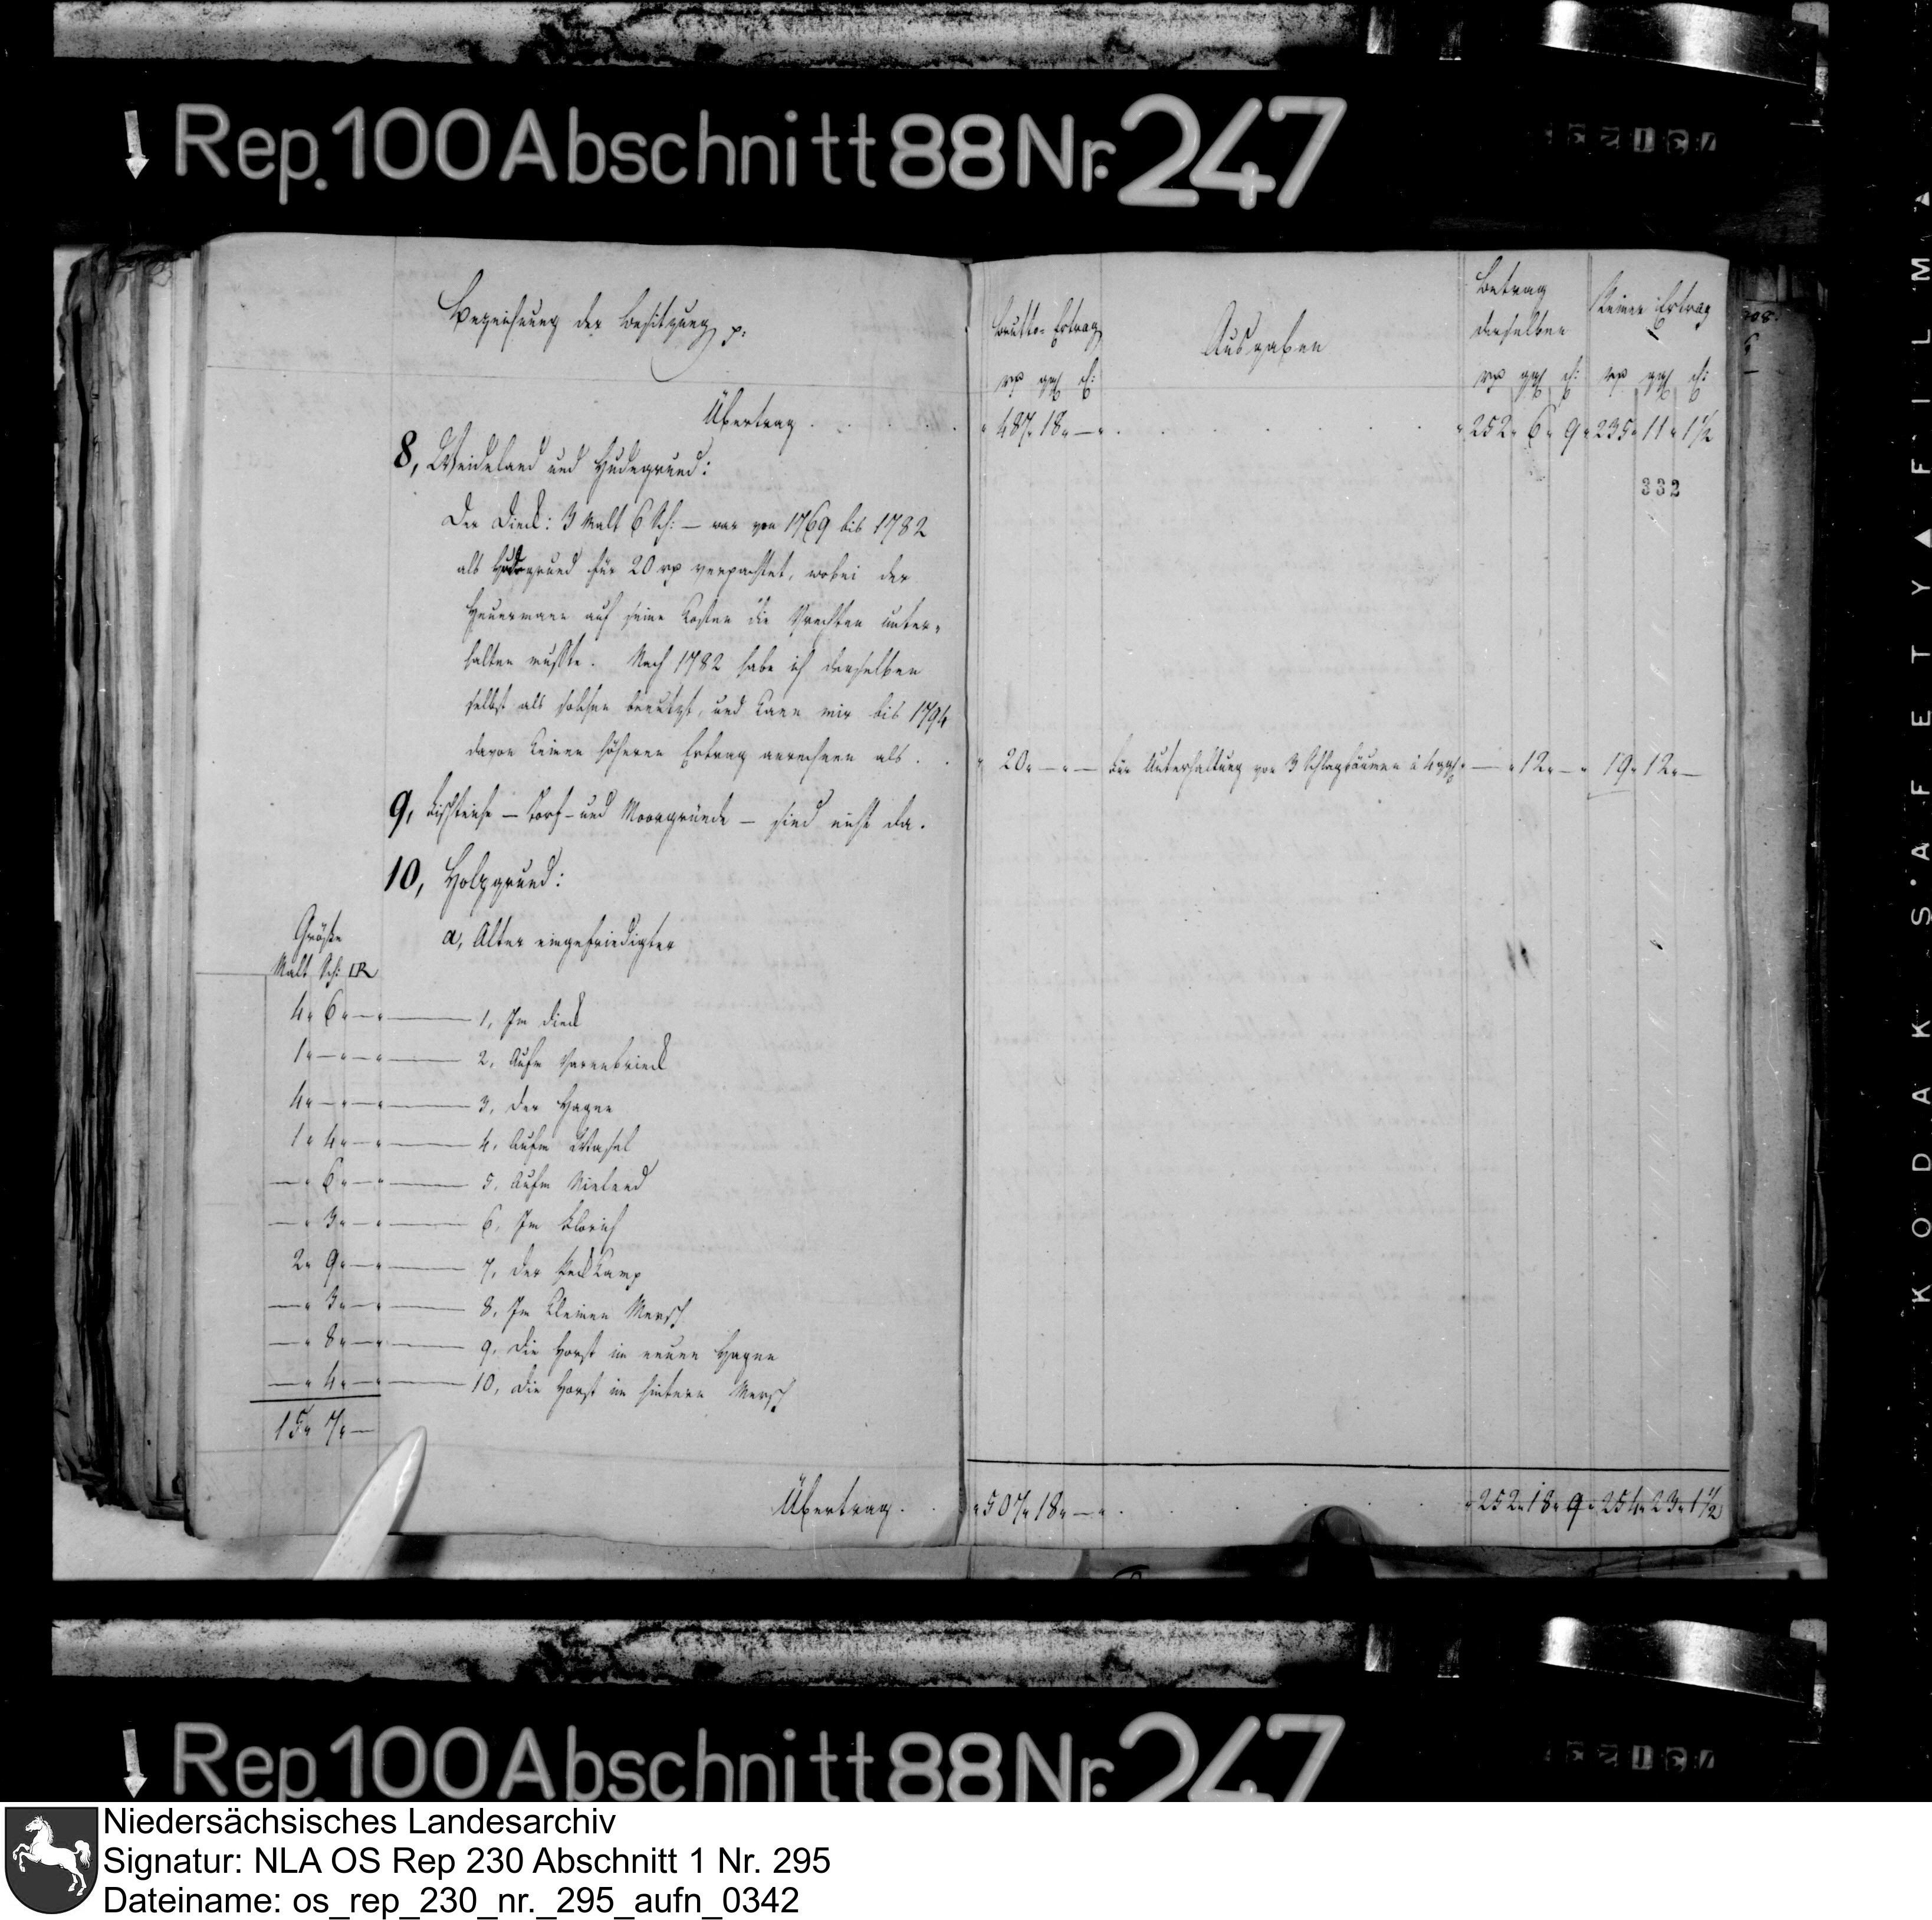 Rep. 100 Abschnitt 88 Nr. 247
Bezeichnung der Besitzung p:
Übertrag . . . . .
8, Weideland und Hudegrund:
Der Dieck: 3 Malt 6 Sch: — war von 1769 bis 1782
als Hudegrund für 20 rp verpachtet, wobei der
Heuermann auf seine Kosten die Vrechten unter-
halten mußte. Nach 1782 habe ich denselben
selbst als solchen benutzt, und kann mir bis 1794
davon keinen höheren Ertrag anrechnen als . .
9, Fischteiche — Torf- und Moorgründe — sind nicht da.
10, Holzgrund:
a, Alter eingefriedigter
Größe
Malt Sch: □R
4 " 6 " — " —— 1, Im Dieck
1 " — " — " —— 2, Aufm Varenbrieck
4 " — " — " —— 3, Der Hagen
1 " 4 " — " —— 4, Aufm
— " 6 " — " —— 5, Aufm Nieland
— " 3 " — " —— 6, Im
2 " 9 " — " —— 7, Der
— " 3 " — " —— 8, Im kleinen Mersch
— " 8 " — " —— 9, Die Horst im neuen Hagen
— " 4 " — " —— 10, Die Horst im hintern Mersch
15 " 7 " —
Übertrag . .
Brutto-Ertrag
rp ggl d:
Ausgaben
Betrag
derselben
rp ggl d:
Reiner Ertrag
rp ggl d:
" 487 " 18 " — " . . . . . . " 252 " 6 " 9 " 235 " 11 " 1 1/2
332
" 20 " — " — Für Unterhaltung von 3 Schlagbäumen à 4 ggl " — " 12 " — " 19 " 12 " —
" 507 " 18 " — " . . . . . " 252 " 18 " 9 " 254 " 23 " 1 1/2
KODAK SAFETY FILM
Rep. 100 Abschnitt 88 Nr. 247
Niedersächsisches Landesarchiv
Signatur: NLA OS Rep 230 Abschnitt 1 Nr. 295
Dateiname: os_rep_230_nr._295_aufn_0342